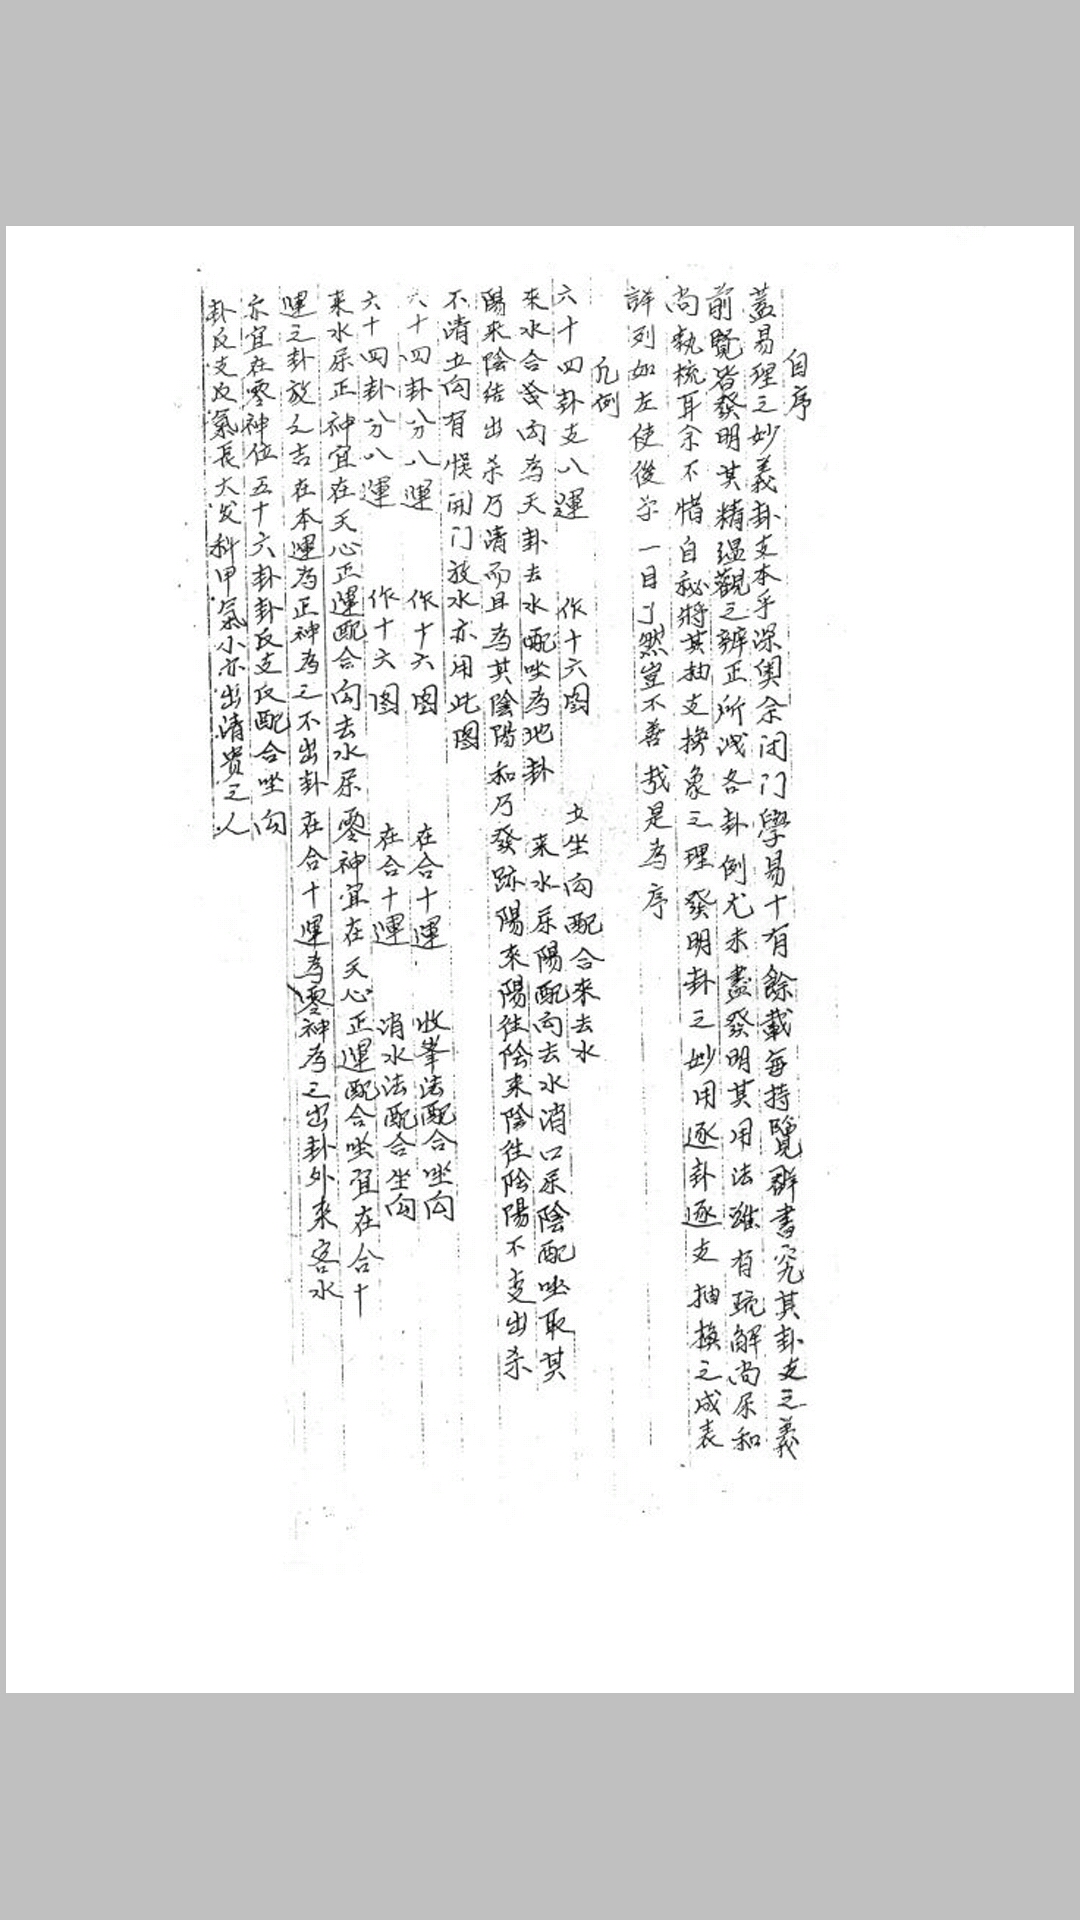 自序
蓋易理之妙義卦支本乎深奧余闭门學易十有餘載每持覽群書究其卦支之義
前覽皆發明其精蕴觀之辨正所洩各卦例尤未盡發明其用法雖有疏解尚属和
尚執梳耳余不惜自秘將其抽支換象之理發明卦之妙用逐卦逐支抽換之成表
詳列如左使後学一目了然豈不善哉是為序
凡例
六十四卦支八運 作十六图 立坐向配合來去水
來水合我向為天卦去水配坐為地卦 来水屬陽配向去水消口屬陰配坐取其
陽來陰结出杀乃清而且為其陰陽和乃發跡陽来陽往陰来陰往陰陽不变出杀
不清立向有悮開门放水亦用此图
六十四卦分八運 作十六图 在合十運 收峯法配合坐向
六十四卦分八運 作十六图 在合十運 消水法配合坐向
来水屬正神宜在天心正運配合向去水屬零神宜在天心正運配合坐宜在合十
運之卦放之吉在本運為正神為之不出卦在合十運為零神為之出卦外来客水
亦宜在零神位五十六卦卦反支反配合坐向
卦反支反氣長大发科甲氣小亦出清贵之人